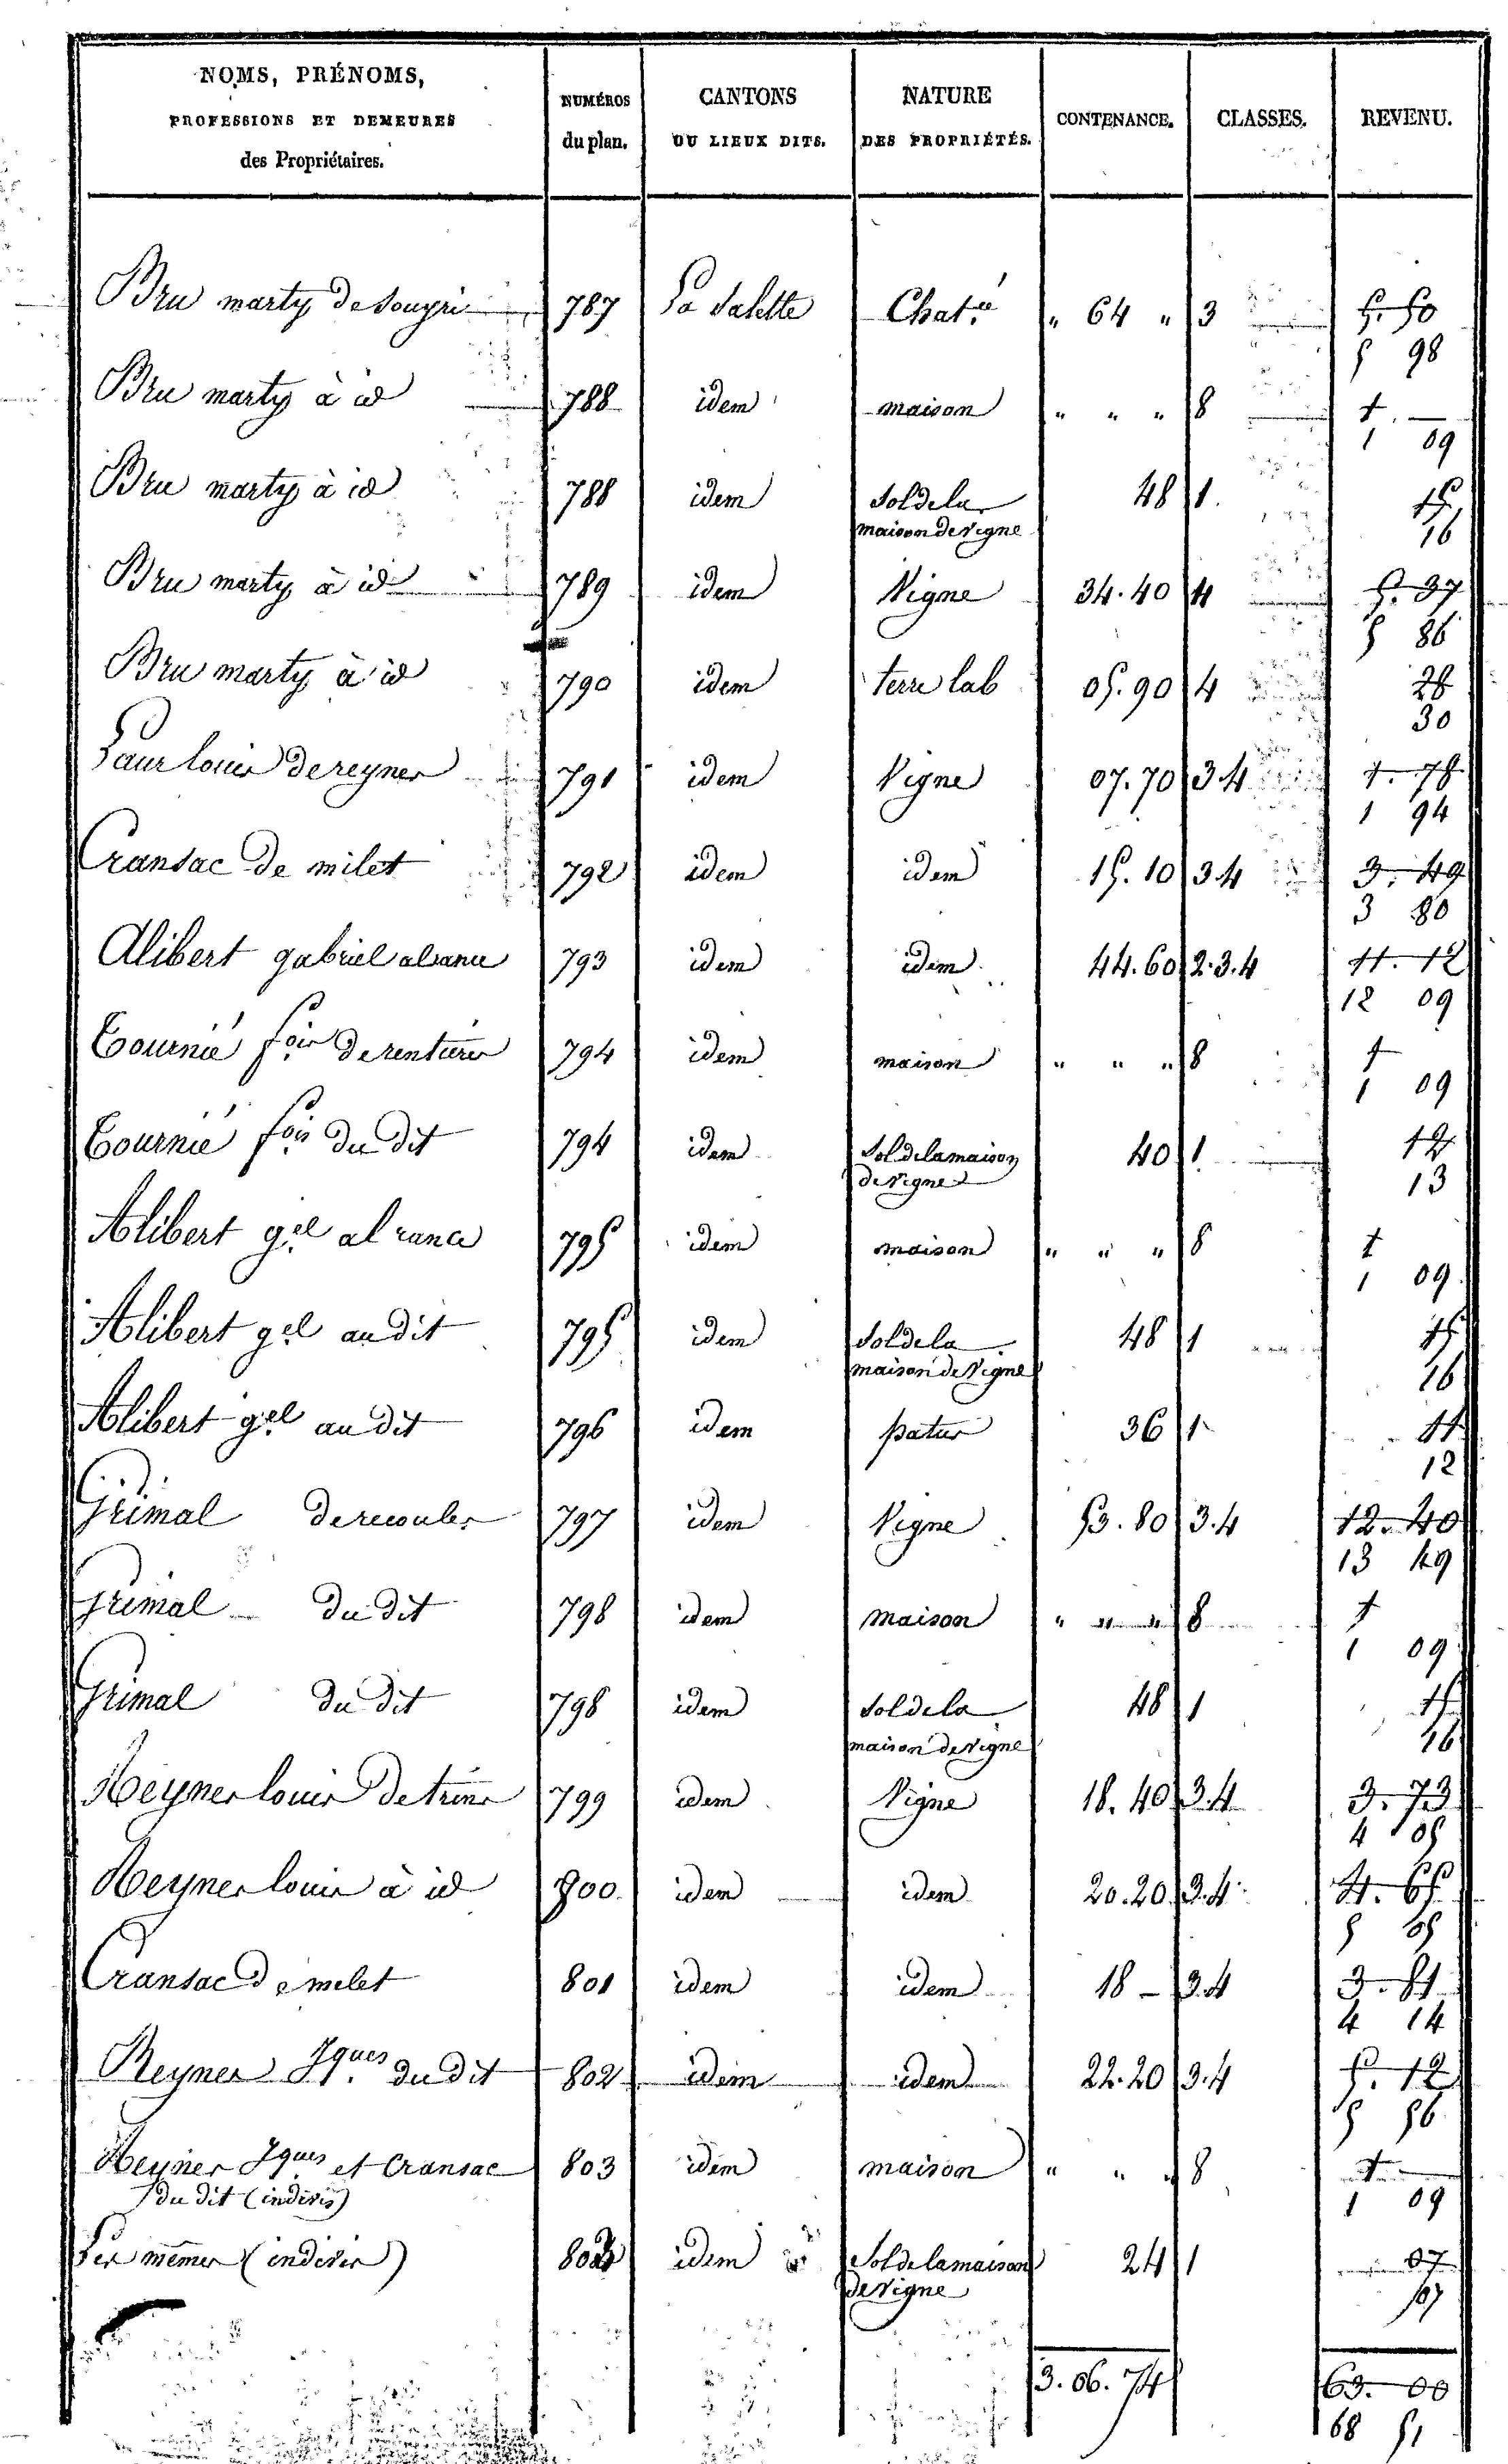 NOMS, PRÉNOMS, PROFESSIONS ET DEMEURES des Propriétaires. NUMÉROS du plan. CANTONS OU LIEUX DITS. NATURE DES PROPRIÉTÉS. CONTENANCE. CLASSES. REVENU.
Bru marty de Souyri 787 La Salette Chat.ré " 64 " 3 5. 50
5 98
Bru marty à id 788 idem maison " " " 8 1. —
1 09
Bru marty à id 788 idem Sol de la 48 1. 15
maison de Vigne 16
Bru marty à id 789 idem Vigne 34. 40 4 5. 37
5 86
Bru marty à id 790 idem terre lab 05. 90 4 28
30
Laur louis de reyner 791 idem Vigne 07. 70 3 4 1. 78
1 94
Cransac de milet 792 idem idem 15. 10 3 4 3. 49
3 80
Alibert gabriel 793 idem idem 44. 60 2. 3. 4 11. 12
12 09
Tournié fois de rentières 794 idem maison " " " 8 1
1 09
Tournié fois du dit 794 idem Sol de la maison 40 1 12
de Vigne 13
Alibert g.el al rance 795 idem maison " " " 8 1
1 09
Alibert g.el au dit 795 idem Sol de la 48 1 15
maison de Vigne 16
Alibert g.el au dit 796 idem patur 36 1 11
12
Grimal de recoules 797 idem Vigne 53. 80 3. 4 12. 40
13 49
Grimal du dit 798 idem maison " " " 8 1
1 09
Grimal du dit 798 idem Sol de la 48 1 15
maison de Vigne 16
Reyner louis 799 idem Vigne 18. 40 3. 4 3. 73
4 05
Reyner louis à id 800 idem idem 20. 20 3. 4 4. 65
5 05
Cransac de milet 801 idem idem 18 — 3. 4 3. 81
4 14
Reyner Jques du dit 802 idem idem 22. 20 3. 4 5. 12
5 56
Reyner Jques et Cransac 803 idem maison " " " 8 1
du dit (indivis) 1 09
Les mêmes (indivis) 803 idem Sol de la maison 24 1 07
de Vigne 07
3. 06. 74 63. 00
68 51